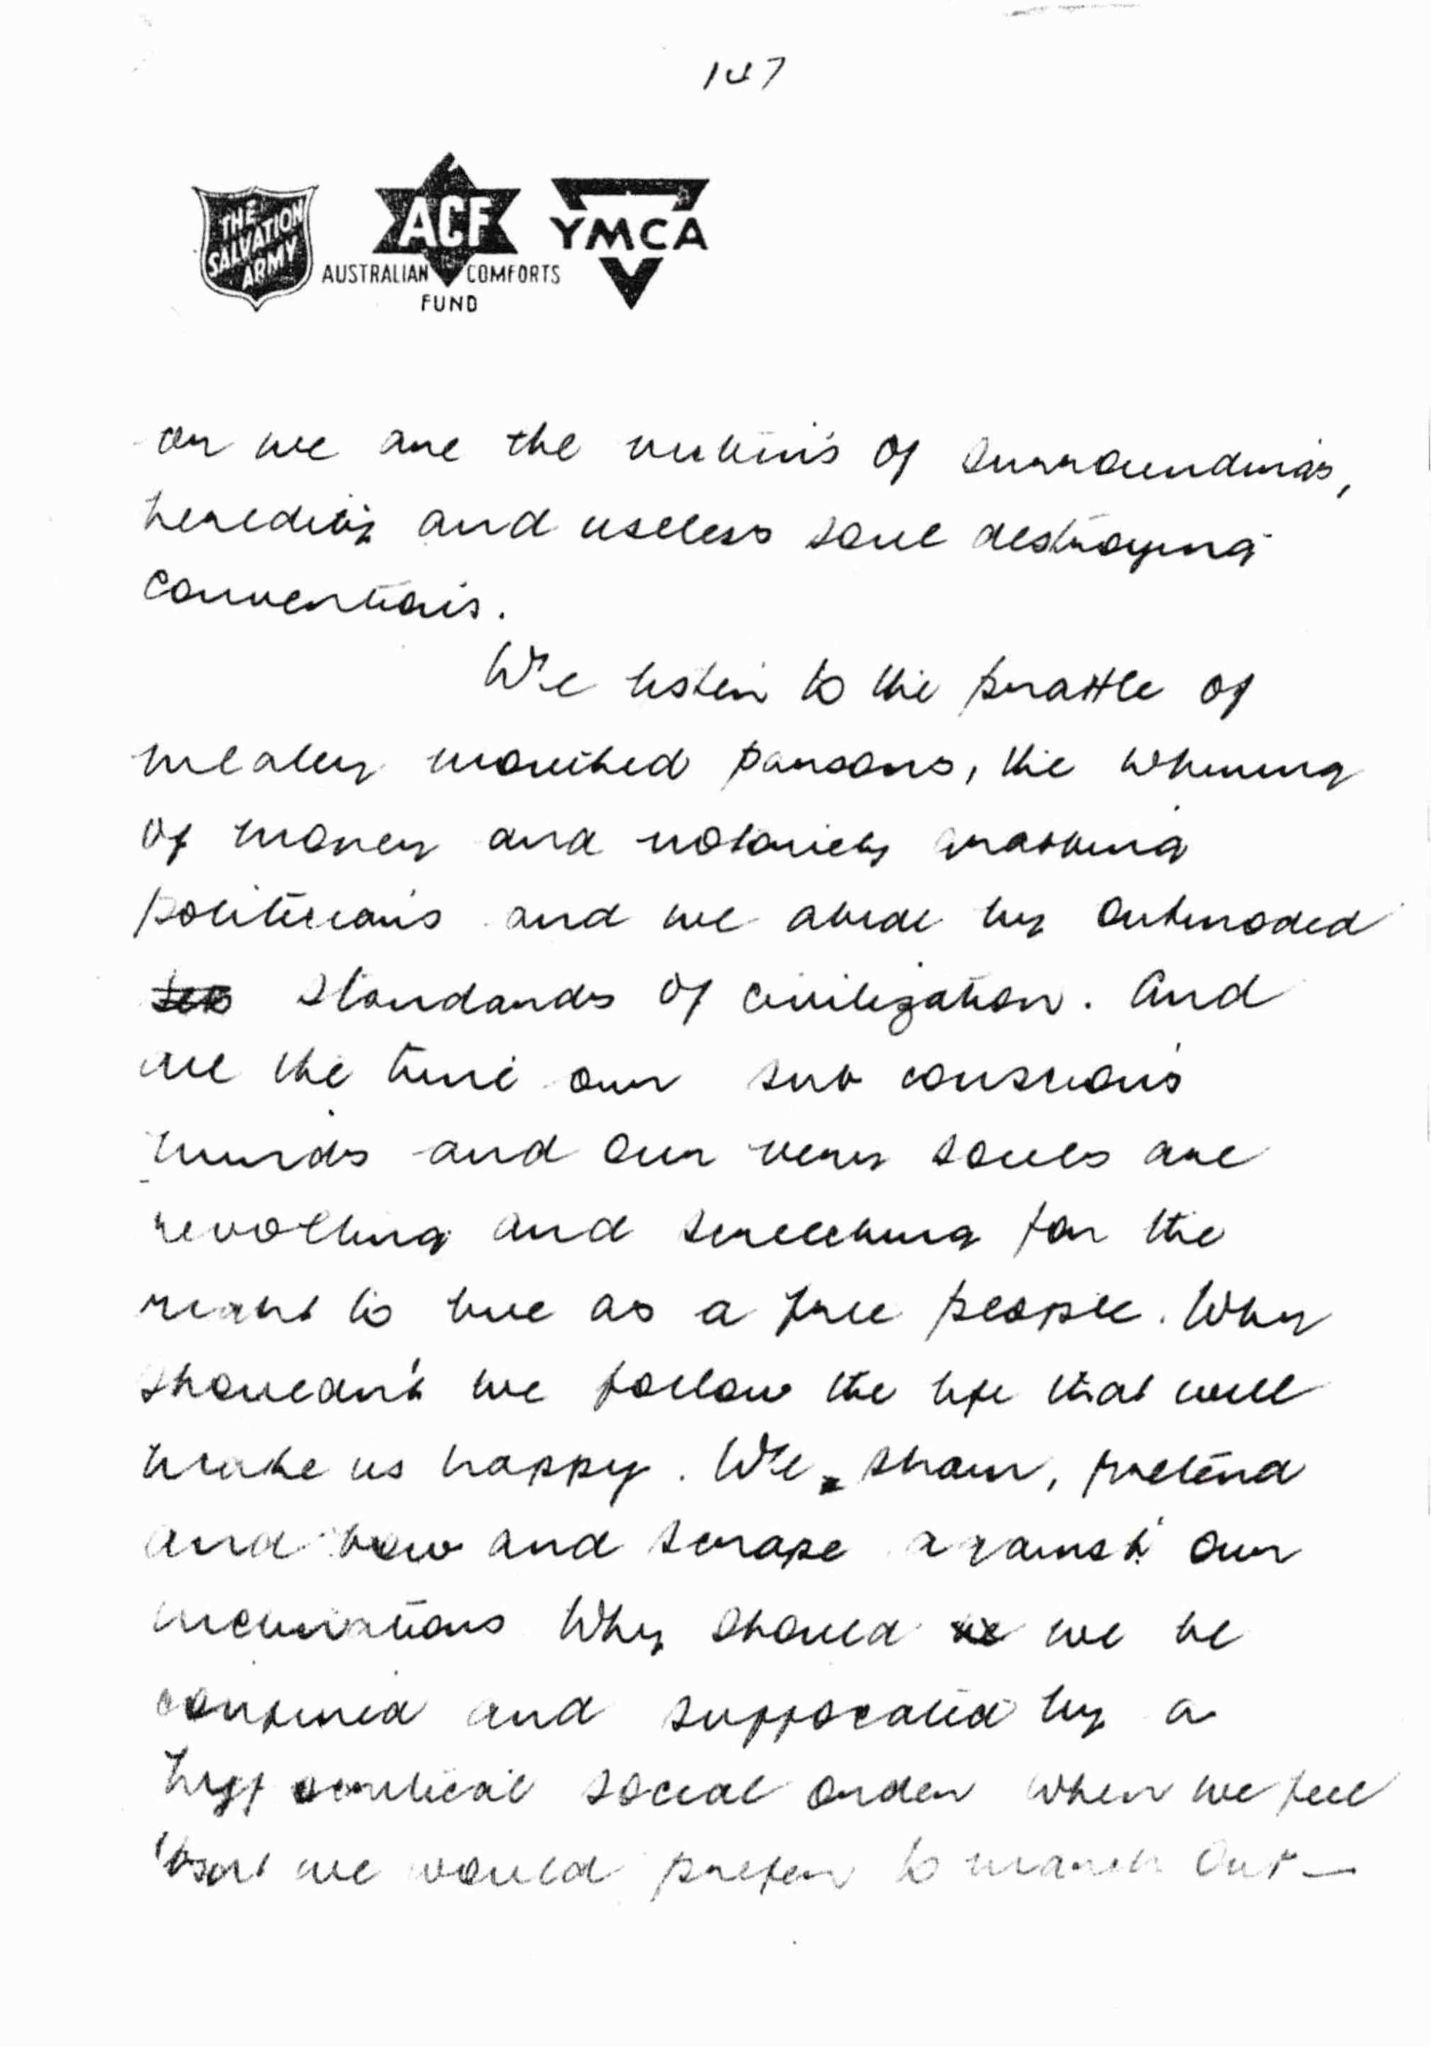 147
THE
SALVATION
ARMY
ACF
AUSTRALIAN COMFORTS
FUND
YMCA
or we are the victims of surroundings,
heredity and useless soul destroying
conventions.
We listen to the prattle of
mealey mouthed parsons, the whining
of money and notoriety grasping
politicians and we abide by outmoded
standards of civilization. And
all the time our sub conscious
minds and our very souls are
revolting and screeching for the
right to live as a free people. Why
shouldn't we follow the life that will
make us happy. We sham, pretend
and bow and scrape against our
inclinations Why should we be
confined and suffocated by a
hypocritical social order when we feel
that we would prefer to march out—